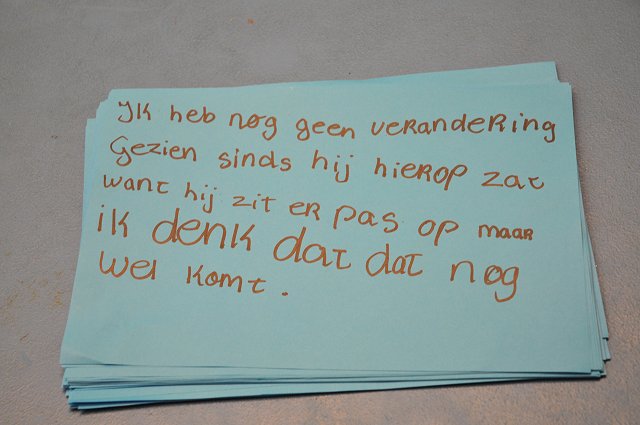 Ik heb nog geen verandering
Gezien sinds hij hierop zat
want hij zit er pas op maar
ik denk dat dat nog
wel komt.